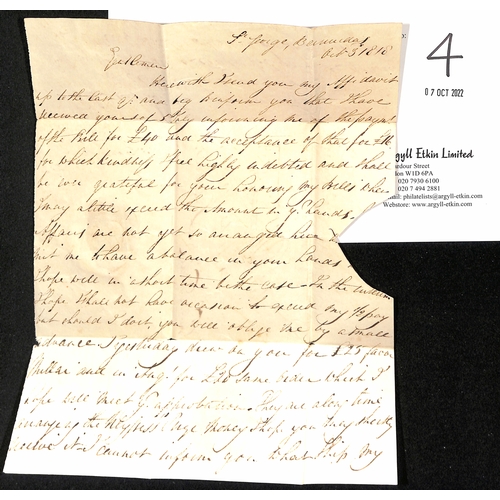 St. Georges, Bermudas
Oct. 3 1818
Gentlemen
Herewith I send you my Affidavit
up to the last and beg to inform you that I have
received yours of July informing me of the payment
of the Bill for £40 and the acceptance of that for £16
for which kindness I feel highly indebted and shall
be ever grateful for your honoring my Bills when
I may a little exceed the Amount in yr. hands.
Affairs are not yet so arranged here
me to have a balance in your hands
hope will in a short time be the case. In the
I hope I shall not have occasion to exceed my ½ pay
but should I do it, you will oblige me by a small
advance I yesterday drew on you for £25 favor
and in Augt. for £20 same which I
hope will meet yr. approbation. They are a long time
in arranging the Money I hope you may shortly
receive it. I cannot inform you what Ship my
4
07 OCT 2022
gyll Etkin Limited
ardour Street
on W1D 6PA
020 7930 6100
020 7 494 2881
mail: philatelists@argyll-etkin.com
Webstore: www.argyll-etkin.com